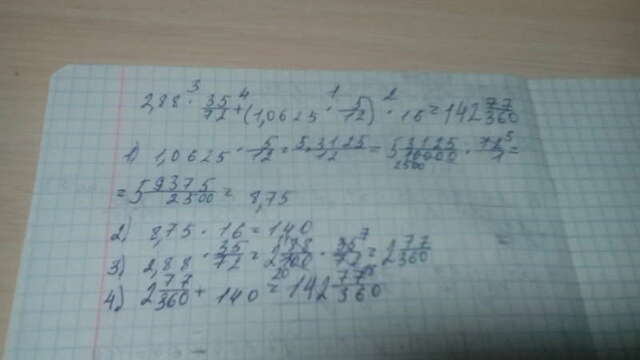 2,88 · 35/72 + (1,0625 · 5/12) · 16 = 142 77/360
1) 1,0625 · 5/12 = 5,3125/12 = 5 3125/10000 · 12/1 =
= 5 9375/2500 = 8,75
2) 8,75 · 16 = 140
3) 2,88 · 35/72 = 2 88/100 · 35/72 = 2 77/360
4) 2 77/360 + 140 = 142 77/360